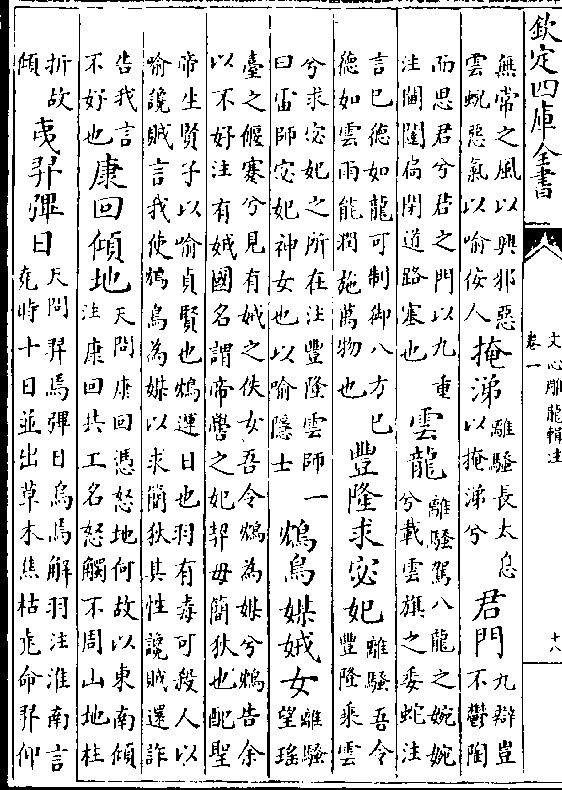 欽定四庫全書
文心雕龍輯注
卷一
十八
無常之風以興邪惡
雲蜺惡氣以喻佞人
掩涕
離騷長太息
以掩涕兮
君門
九辯豈
不鬱陶
而思君兮君之門以九重
注閶闔扃閉道路塞也
雲龍
離騷駕八龍之婉婉
兮載雲旗之委蛇注
言已德如龍可制御八方已
德如雲雨能潤施萬物也
豐隆求宓妃
離騷吾令
豐隆乘雲
兮求宓妃之所在注豐隆雲師一
曰雷師宓妃神女也以喻隱士
鴆鳥媒娀女
離騷
望瑤
臺之偃蹇兮見有娀之佚女吾令鴆為媒兮鴆告余
以不好注有娀國名謂帝嚳之妃契母簡狄也配聖
帝生賢子以喻貞賢也鴆運日也羽有毒可殺人以
喻讒賊言我使鴆鳥為媒以求簡狄其性讒賊還詐
告我言
不好也
康回傾地
天問康回憑怒地何故以東南傾
注康回共工名怒觸不周山地柱
折故
傾
夷羿彃日
天問羿焉彃日烏焉解羽注淮南言
堯時十日並出草木焦枯堯命羿仰